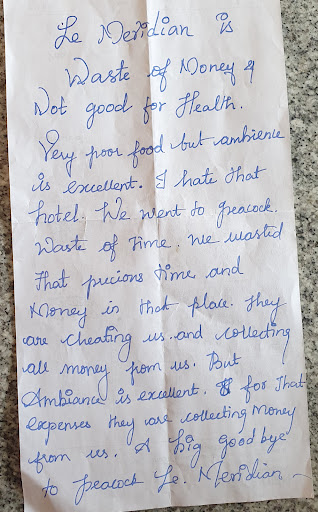 Le Meridian is
Waste of Money &
Not good for Health.
Very poor food but ambience
is excellent. I hate that
hotel. We went to peacock.
Waste of Time. We wasted
That precious time and
Money in that place. They
are cheating us. and collecting
all money from us. But
Ambiance is excellent. for That
expenses they are collecting Money
from us. A big good bye
to peacock Le. Meridian